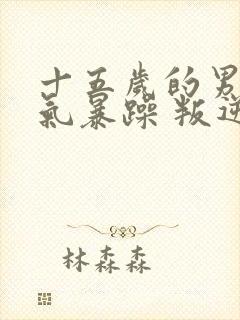 十五歲的男
氣暴躁 叛逆
林森森